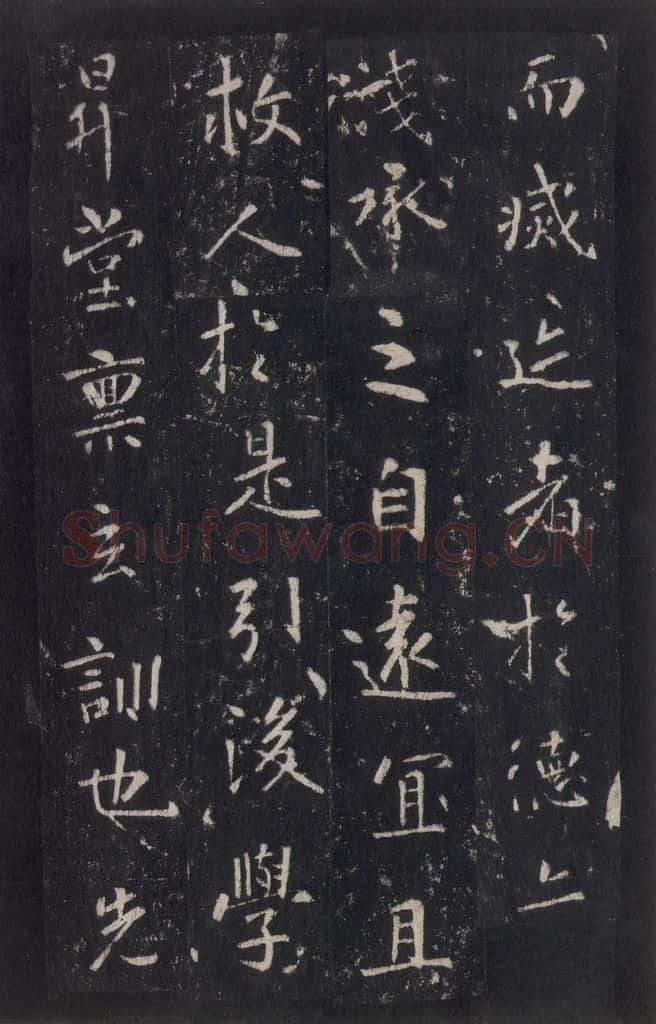 而感迹者於德之
淺承之自遠宜且
救人於是引後學
昇堂稟玄訓也先
Shufawang.CN